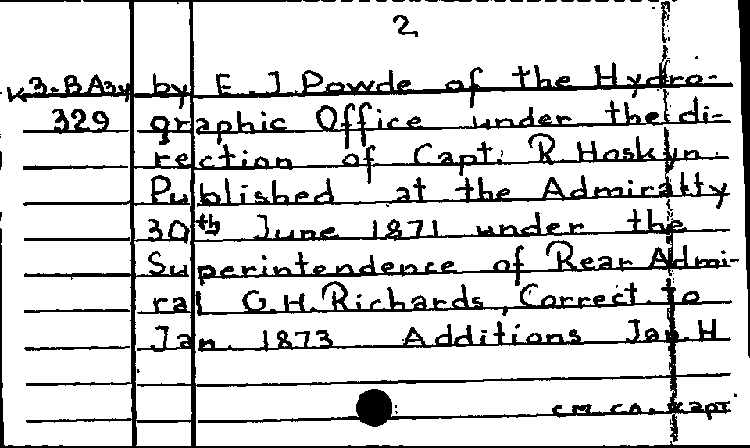 2
K3-BAзу by E. J Powde of the Hydro-
329 graphic Office under the di-
rection of Capt. R Hoskyn.
Published at the Admiralty
30th June 1871 under the
Superintendence of Rear Admi-
ral G.H. Richards, Correct to
Jan. 1873 Additions Jan H
см. сл. карт